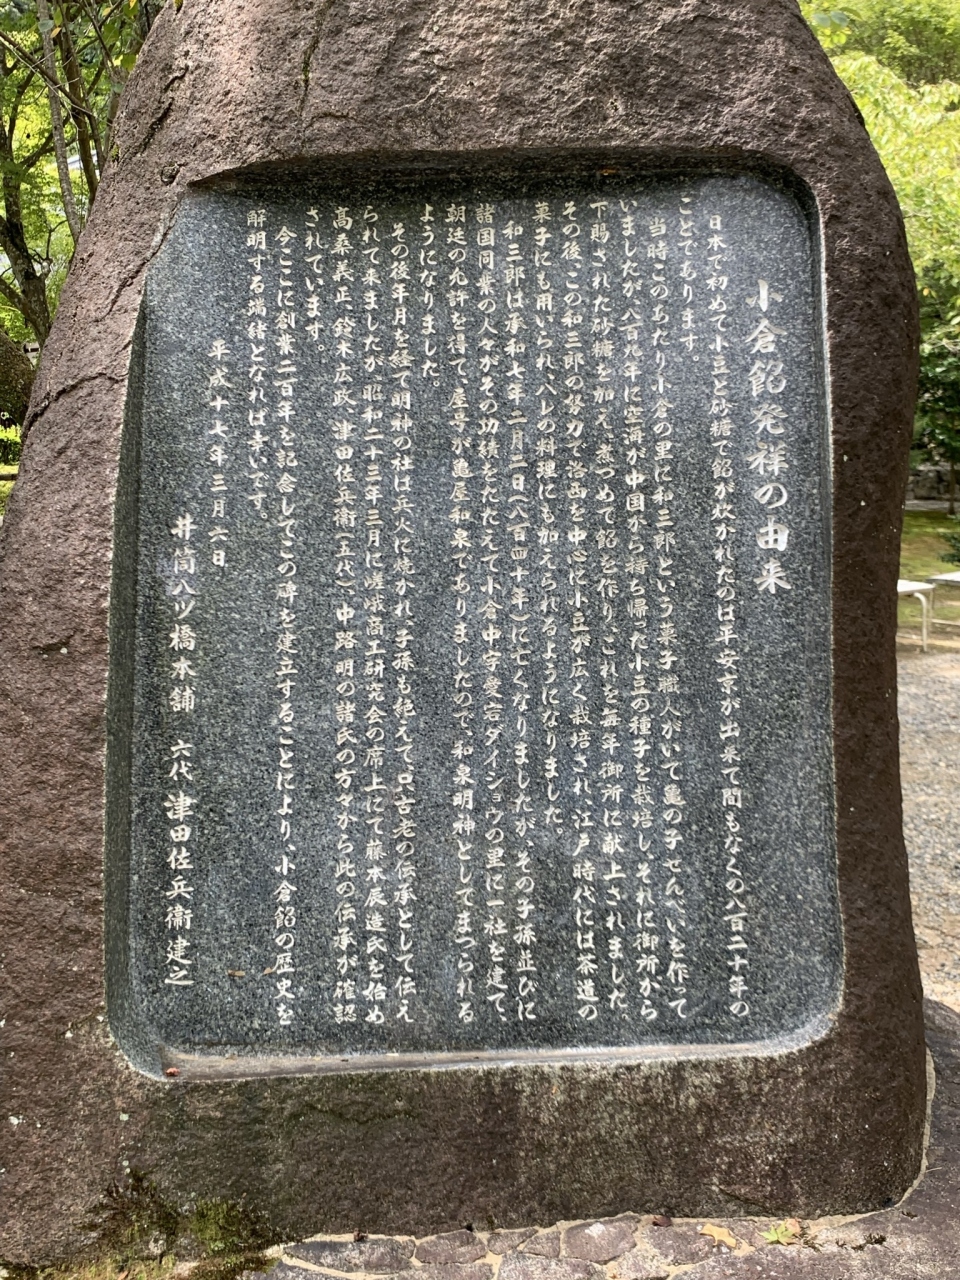 小倉餡発祥の由来
日本で初めて小豆と砂糖で餡が炊かれたのは平安京が出来て間もなくの八百二十年の
ことであります。
当時このあたり小倉の里に和三郎という菓子職人がいて亀の子せんべいを作って
いましたが、八百九年に空海が中国から持ち帰った小豆の種子を栽培し、それに御所から
下賜された砂糖を加え、煮つめて餡を作り、これを毎年御所に献上されました。
その後、この和三郎の努力で洛西を中心に小豆が広く栽培され、江戸時代には茶道の
菓子にも用いられ、ハレの料理にも加えられるようになりました。
和三郎は承和七年二月二日(八百四十年)に亡くなりましたが、その子孫並びに
諸国同業の人々がその功績をたたえて小倉中字愛宕ダイショウの里に一社を建て、
朝廷の允許を得て、屋号が亀屋和泉でありましたので、和泉明神としてまつられる
ようになりました。
その後年月を経て明神の社は兵火に焼かれ、子孫も絶えて、只古老の伝承として伝え
られて来ましたが、昭和二十三年三月に嵯峨商工研究会の席上にて藤本辰造氏を始め
高桑義正、鈴木広政、津田佐兵衞(五代)、中路明の諸氏の方々から此の伝承が確認
されています。
今ここに創業二百年を記念してこの碑を建立することにより、小倉餡の歴史を
解明する端緒となれば幸いです。
平成十七年三月六日
井筒八ツ橋本舗 六代 津田佐兵衞建之